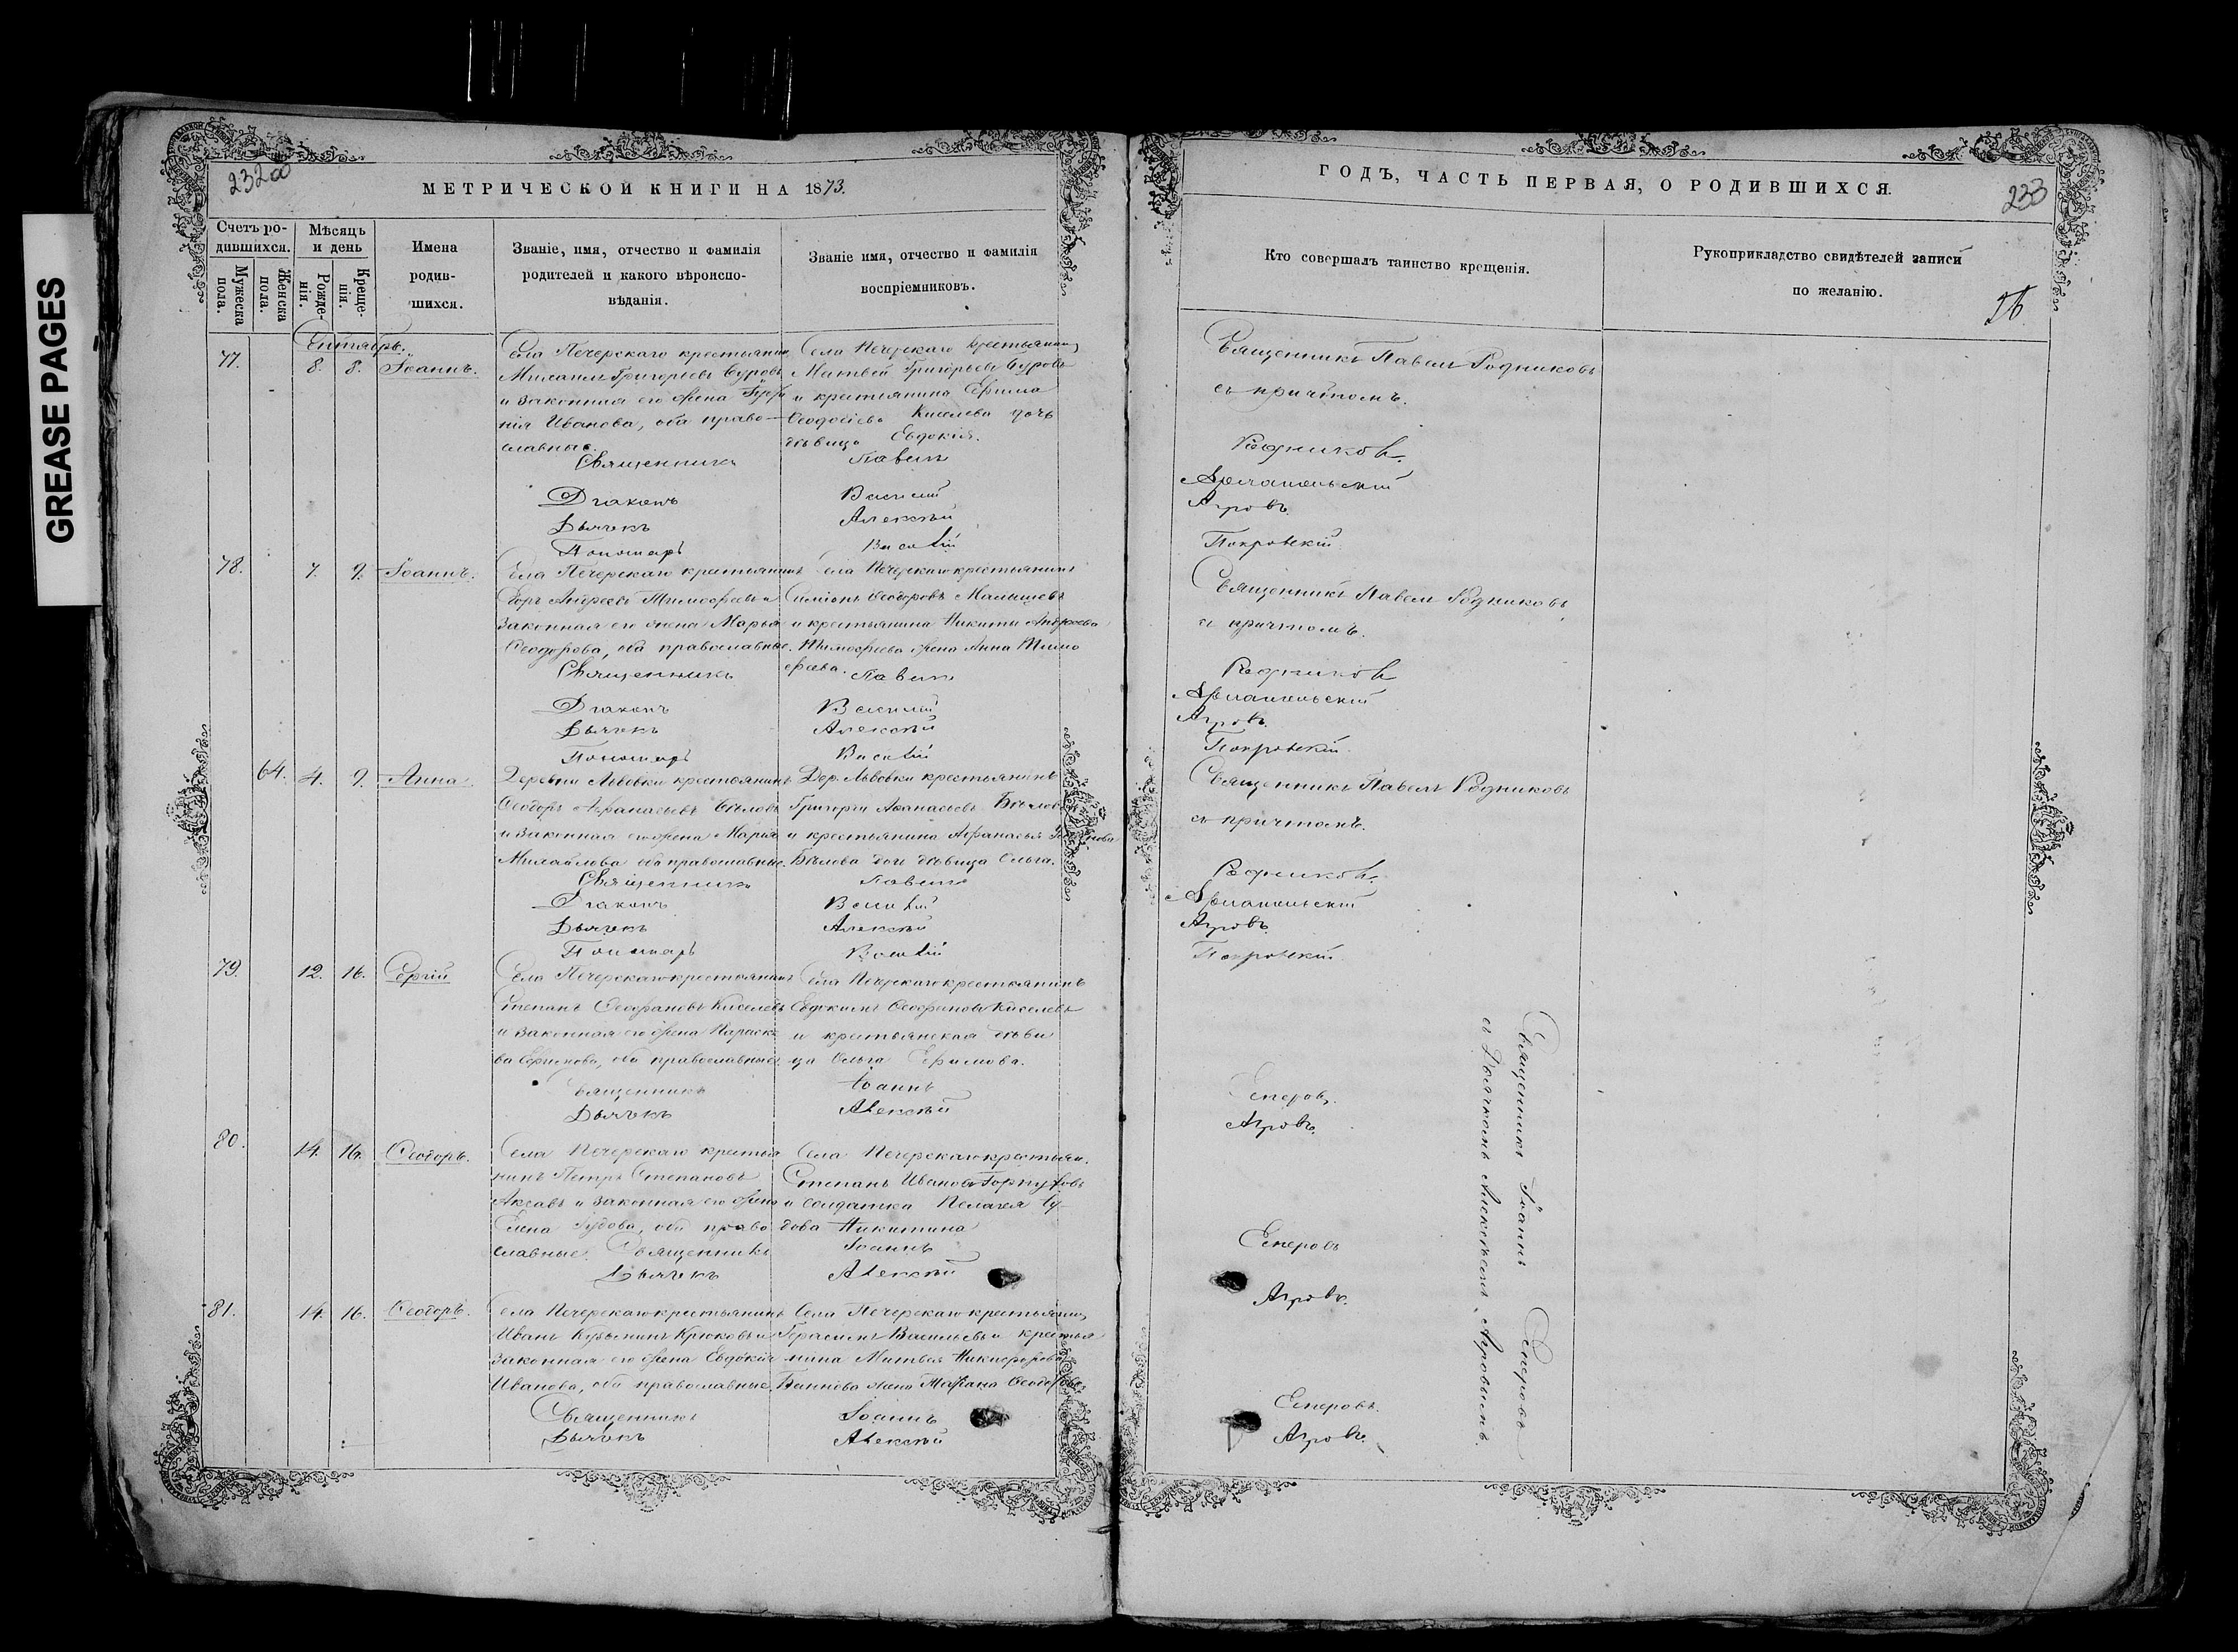 GREASE PAGES
232об
МЕТРИЧЕСКОЙ КНИГИ НА 1873.
Счетъ ро-
дившихся.
Мужеска пола.
Женска пола.
Мѣсяцъ
и день
Рожде-
нія.
Креще-
нія.
Имена
родив-
шихся.
Званіе, имя, отчество и фамилія
родителей и какого вѣроиспо-
вѣданія.
Званіе имя, отчество и фамилія
воспріемниковъ.
Сентябрь.
77. 8. 8. Іоаннъ.
Села Печерскаго крестьянин
Михаилъ Григорьевъ Суровъ
и законная его жена
нія Иванова, оба право-
славные.
Села Печерскаго крестьянин
Матвей Григорьевъ Суровъ
и крестьянина Ефима
Ѳеодосіева Киселева дочь
дѣвица Евдокія.
Священникъ Павелъ
Діаконъ Василій
Дьячекъ Алексѣй
Пономарь Василій
78. 7. 9. Іоаннъ.
Села Печерскаго крестьянинъ
Егоръ Андреевъ Тимофеевъ и
законная его жена Марья
Ѳеодорова, оба православные.
Села Печерскаго крестьянинъ
Симіонъ Ѳеодоровъ Малышевъ
и крестьянина Никиты Андреева
Тимофеева жена Анна Тимо
феева.
Священникъ Павелъ
Діаконъ Василій
Дьячекъ Алексѣй
Пономарь Василій
64. 4. 9. Анна.
Деревни Львовки крестьянинъ
Ѳеодоръ Афанасьевъ Бѣловъ
и законная его жена Мария
Михайлова оба православные.
Дер. Львовки крестьянинъ
Григорій Афанасьевъ Бѣловъ
и крестьянина Афанасья
Бѣлова дочь дѣвица Ольга.
Священникъ Павелъ
Діаконъ Василій
Дьячекъ Алексѣй
Пономарь Василій
79. 12. 16. Сергій
Села Печерскаго крестьянинъ
Степанъ Ѳеофановъ Киселевъ
и законная его жена Параске
ва Ефимова, оба православные.
Села Печерскаго крестьянинъ
Евдокимъ Ѳеофановъ Киселевъ
и крестьянская дѣви
ца Ольга Ефимова.
Священникъ Іоаннъ
Дьячекъ Алексѣй
80. 14. 16. Ѳеодоръ.
Села Печерскаго крестья
нинъ Петръ Степановъ
и законная его жена
Елена оба право
славные.
Села Печерскаго крестьян.
Степанъ Ивановъ
и солдатка Пелагея
Никитина
Священникъ Іоаннъ
Дьячекъ Алексѣй
81. 14. 16. Ѳеодоръ.
Села Печерскаго крестьянинъ
Иванъ Кузьминъ Крюковъ и
законная его жена Евдокія
Иванова, оба православные.
Села Печерскаго крестьянин,
Герасимъ Васильевъ и крестья
нина Матвея Никифорова
жена Татіана Ѳеодорова
Священникъ Іоаннъ
Дьячекъ Алексѣй
ГОДЪ, ЧАСТЬ ПЕРВАЯ, О РОДИВШИХСЯ.
233
Кто совершалъ таинство крещенія.
Рукоприкладство свидѣтелей записи
по желанію.
Священникъ Павелъ Родниковъ
съ причтомъ.
Родниковъ.
Агровъ
Покровскій
Священникъ Павелъ Родниковъ
съ причтомъ.
Родниковъ
Агровъ.
Покровскій.
Священникъ Павелъ Родниковъ
съ причтомъ.
Родниковъ.
Агровъ.
Покровскій.
Священникъ Іоаннъ Сперовъ
съ Дьячкомъ Алексѣемъ Агровымъ.
Сперовъ.
Агровъ.
Сперовъ
Агровъ.
Сперовъ.
Агровъ.